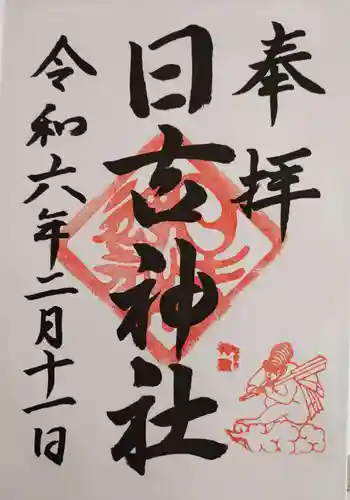 奉拝
日吉神社
令和六年二月十一日